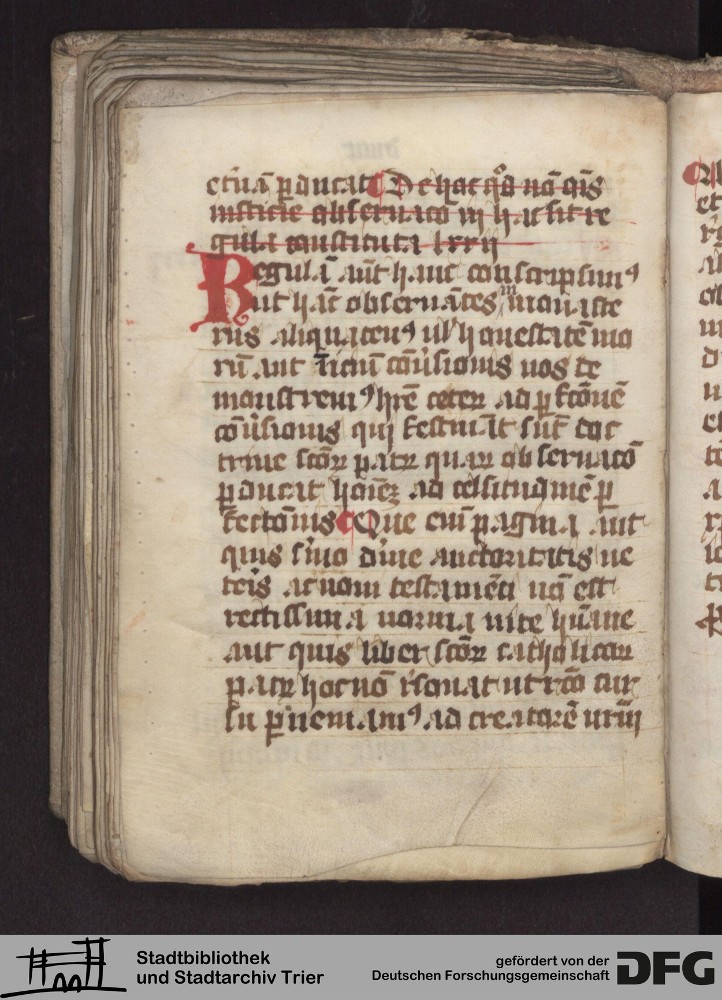 et̄nā ꝑducat De hac qͦd nō oīs
iusticie obseruaco in hac sit re
gula constituta lxxii
Regulā aūt hanc conscripsimꝰ
ut hāc obseruātes in monaste
riis aliquatenꝰ ul̓ honestatē mo
rū aut īiciū cōūsionis nos de
monstremꝰ hr̄e ceteꝝ ad ꝑfcōnē
cōūsionis qui festināt sūt doc
trine scōꝝ patꝝ quaꝝ obseruacō
ꝑducat hoīeꝫ ad celsitudinē ꝑ
fectōnis Que eni pagina aut
quis s̓mo diuīe auctoritatis ue
teris ac noui testamēti nō est
rectissima norma uite hūane
aut quis liber scōꝝ catholicoꝝ
patꝝ hoc nō r̓sonat ut rc̄o cur
su ꝑueniamꝰ ad creatorē nr̄m
Stadtbibliothek
und Stadtarchiv Trier
gefördert von der
Deutschen Forschungsgemeinschaft
DFG